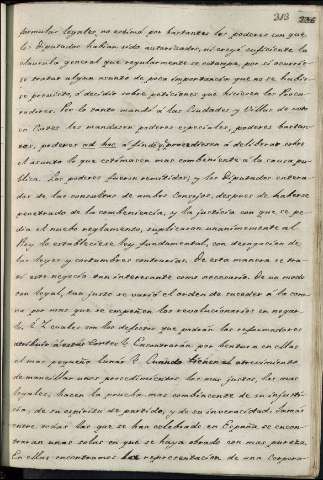 313 236
formular legales, no estimó por bastantes los poderes con que
los Diputados habian sido autorizados, ni creyó suficiente la
clausula general que regularmente se estampa, por si ocurrie-
se tratar algun asunto de poca importancia que no se hubie-
se previsto, ó decidir sobre peticiones que hiciesen los Procu-
radores. Por lo tanto mandó á las Ciudades y Villas de voto
en Cortes les mandasen poderes especiales, poderes bastan-
tes, poderes ad hoc á fin de q. procediesen á deliberar sobre
el asunto lo que estimasen mas combeniente á la causa pu-
blica. Los poderes fueron remitidos; y los Diputados entera-
dos de las consultas de ambos Consejos, despues de haberse
penetrado de la combeniencia, y la justicia con que se pe-
dia el nuebo reglamento, suplicaron unanimemente al
Rey lo estableciese ley fundamental, con derogacion de
las leyes y costumbres contrarias. De esta manera se tra-
tó este negocio tan interesante como necesario. De un modo
tan legal, tan justo se varió el orden de suceder á la coro-
na por mas que se empeñen los revolucionarios en negar-
lo. ¿Y cuales son los defectos que podrán los reformadores
atribuir á estas Cortes? ¿Encontrarán por bentura en ellas
el mas pequeño lunar? Cuando tienen el atrevimiento
de mancillar unos procedimientos los mas justos, los mas
legales, hacen la prueba mas combincente de su injusti-
cia, de su espiritu de partido, y de su inveracidad. Jamas
entre todas las que se han celebrado en España se encon-
trarán unas solas en que se haya obrado con mas pureza.
En ellas encontramos la representacion de una Corpora-